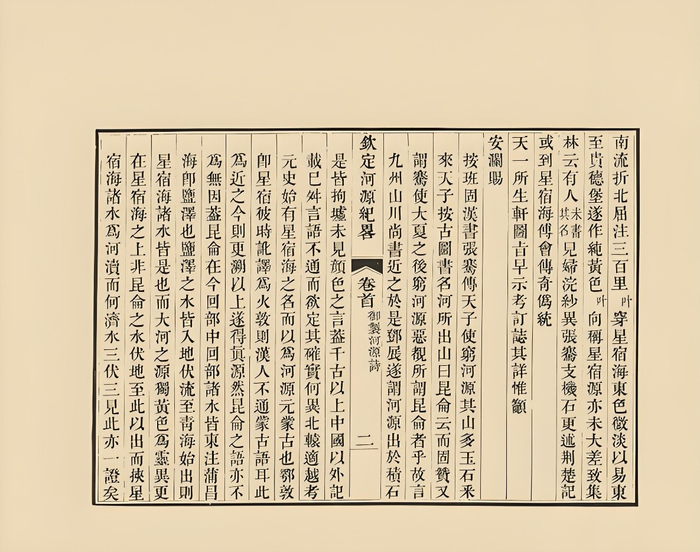 南流折北屈注三百里叶穿星宿海東色微淡以易東
至貴德堡遂作純黃色叶向稱星宿源亦未大差致集
林云有人未書其名見婦浣紗異張騫支機石更述荆楚記
或到星宿海傅會傳奇僞統
天一所生軒圖旹早示考訂誌其詳惟籲
安瀾賜
按班固漢書張騫傳天子使窮河源其山多玉石釆
來天子按古圖書名河所出山曰昆侖云而固贊又
謂騫使大夏之後窮河源惡覩所謂昆侖者乎故言
九州山川尚書近之於是鄧展遂謂河源出於積石
欽定河源紀畧
卷首
御製河源詩
二
是皆拘墟未見顏色之言葢千古以上中國以外記
載已舛言語不通而欲定其確實何異北轅適越考
元史始有星宿海之名而以爲河源元蒙古也鄂敦
卽星宿彼時訛譯爲火敦則漢人不通蒙古語耳此
爲近之今則更溯以上遂得眞源然昆侖之語亦不
爲無因葢昆侖在今回部中回部諸水皆東注蒲昌
海卽鹽澤也鹽澤之水皆入地伏流至青海始出則
星宿海諸水皆是也而大河之源獨黃色爲靈異更
在星宿海之上非昆侖之水伏地至此以出而挾星
宿海諸水爲河瀆而何濟水三伏三見此亦一證矣